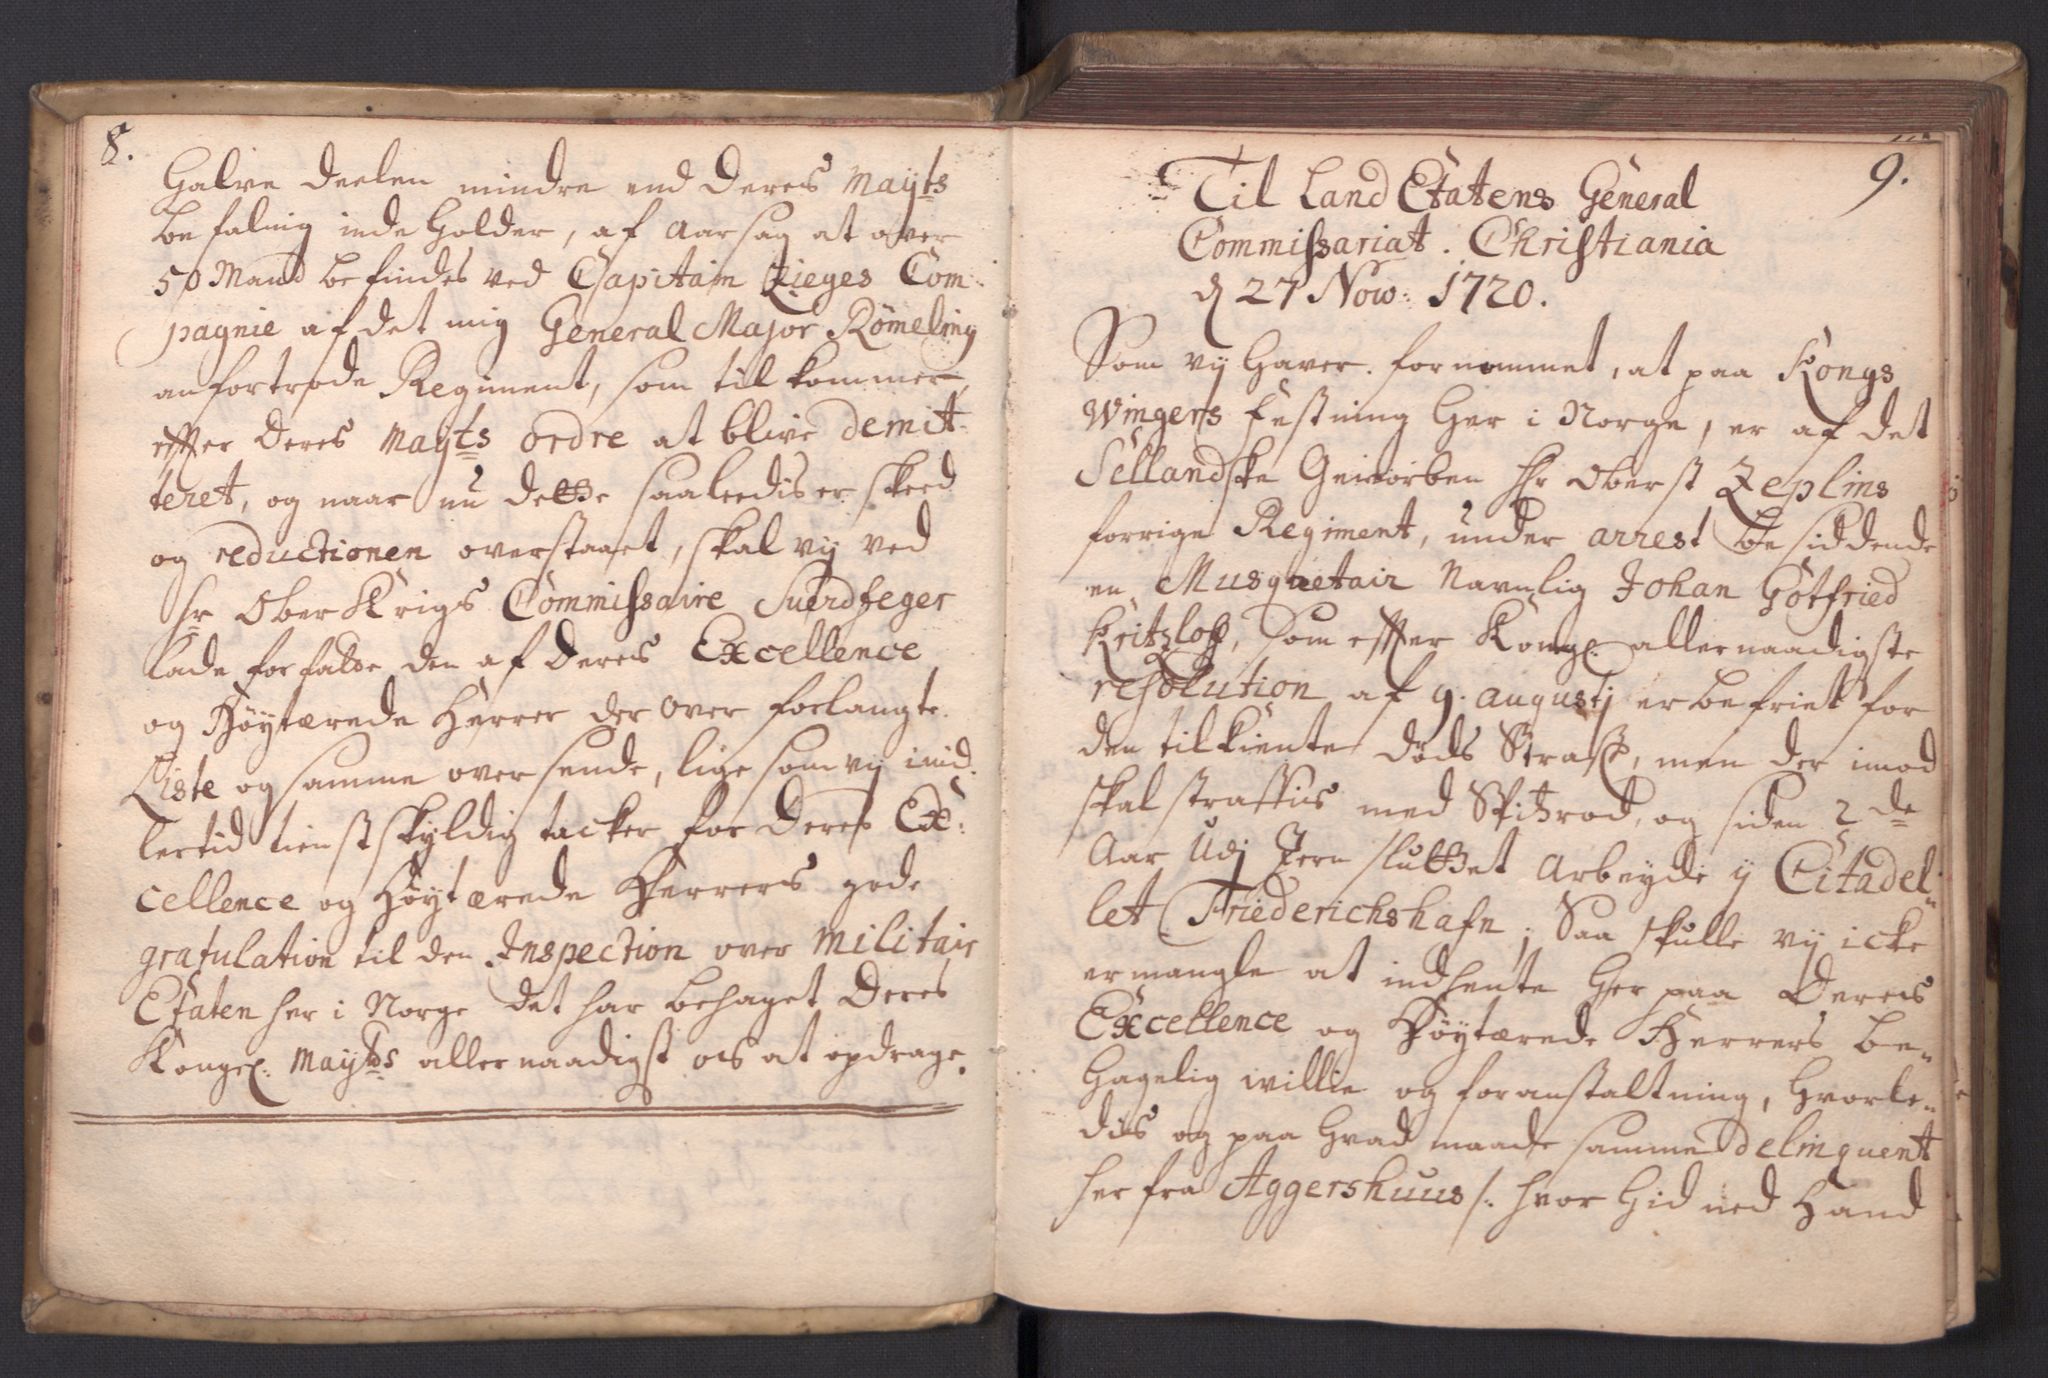 8.
halve deelen mindre end Deres Mayts
befaling inde holder, af aarsag at over
50 Mand befindes ved Capitain Lieges Com:
pagnie af det mig General Major Römeling
anfortrode Regiment, som til kommer,
effter Deres Mayts ordre at blive demit-
teret, og naar nu dette saaleedis er skeed
og reductionen overstaaet, skal vij ved
Hr Ober Krigs Commissaire Suerdfeger
lade forfatte den af Deres Excellence
og Höytærede Herrer der over forlangte
Liste og samme over sende, lige som vij imid:
lertid tienstskyldig tacker for Deres Ex:
cellence og Höytærede Herrers gode
gratulation til den Inspection over Militair
Etaten her i Norge det har behaget Deres
Kongel: Mayts allernaadigst os at opdrage.
9.
Til Land Etatens General
Commissariat. Christiania
d 27 Nov: 1720.
Som vij haver fornommet, at paa Kongs
Wingers Festning her i Norge, er af det
Sellandske Geworben Hr Oberst Zeplins
forrige Regiment, under arrest besiddende
en Musquetair Navnlig Johan Götfried
Kritzloff, Som effter Kongl. allernaadigste
resolution af 9. augustj er befriet for
den tilkiente Döds Straff, men der imod
skal straffis med Spitzrod, og siden 2de
Aar Udj Jern sluttet Arbeyde ij Citadel-
let Friederichshafn; Saa skulle vij icke
ermangle at indhente her paa Deres
Excellence og Höytærede Herrers be-
hagelig willie og foranstaltning, hvorle-
dis og paa hvad maade samme Delinquent
her fra Aggershuus /: hvor hid ned Hand